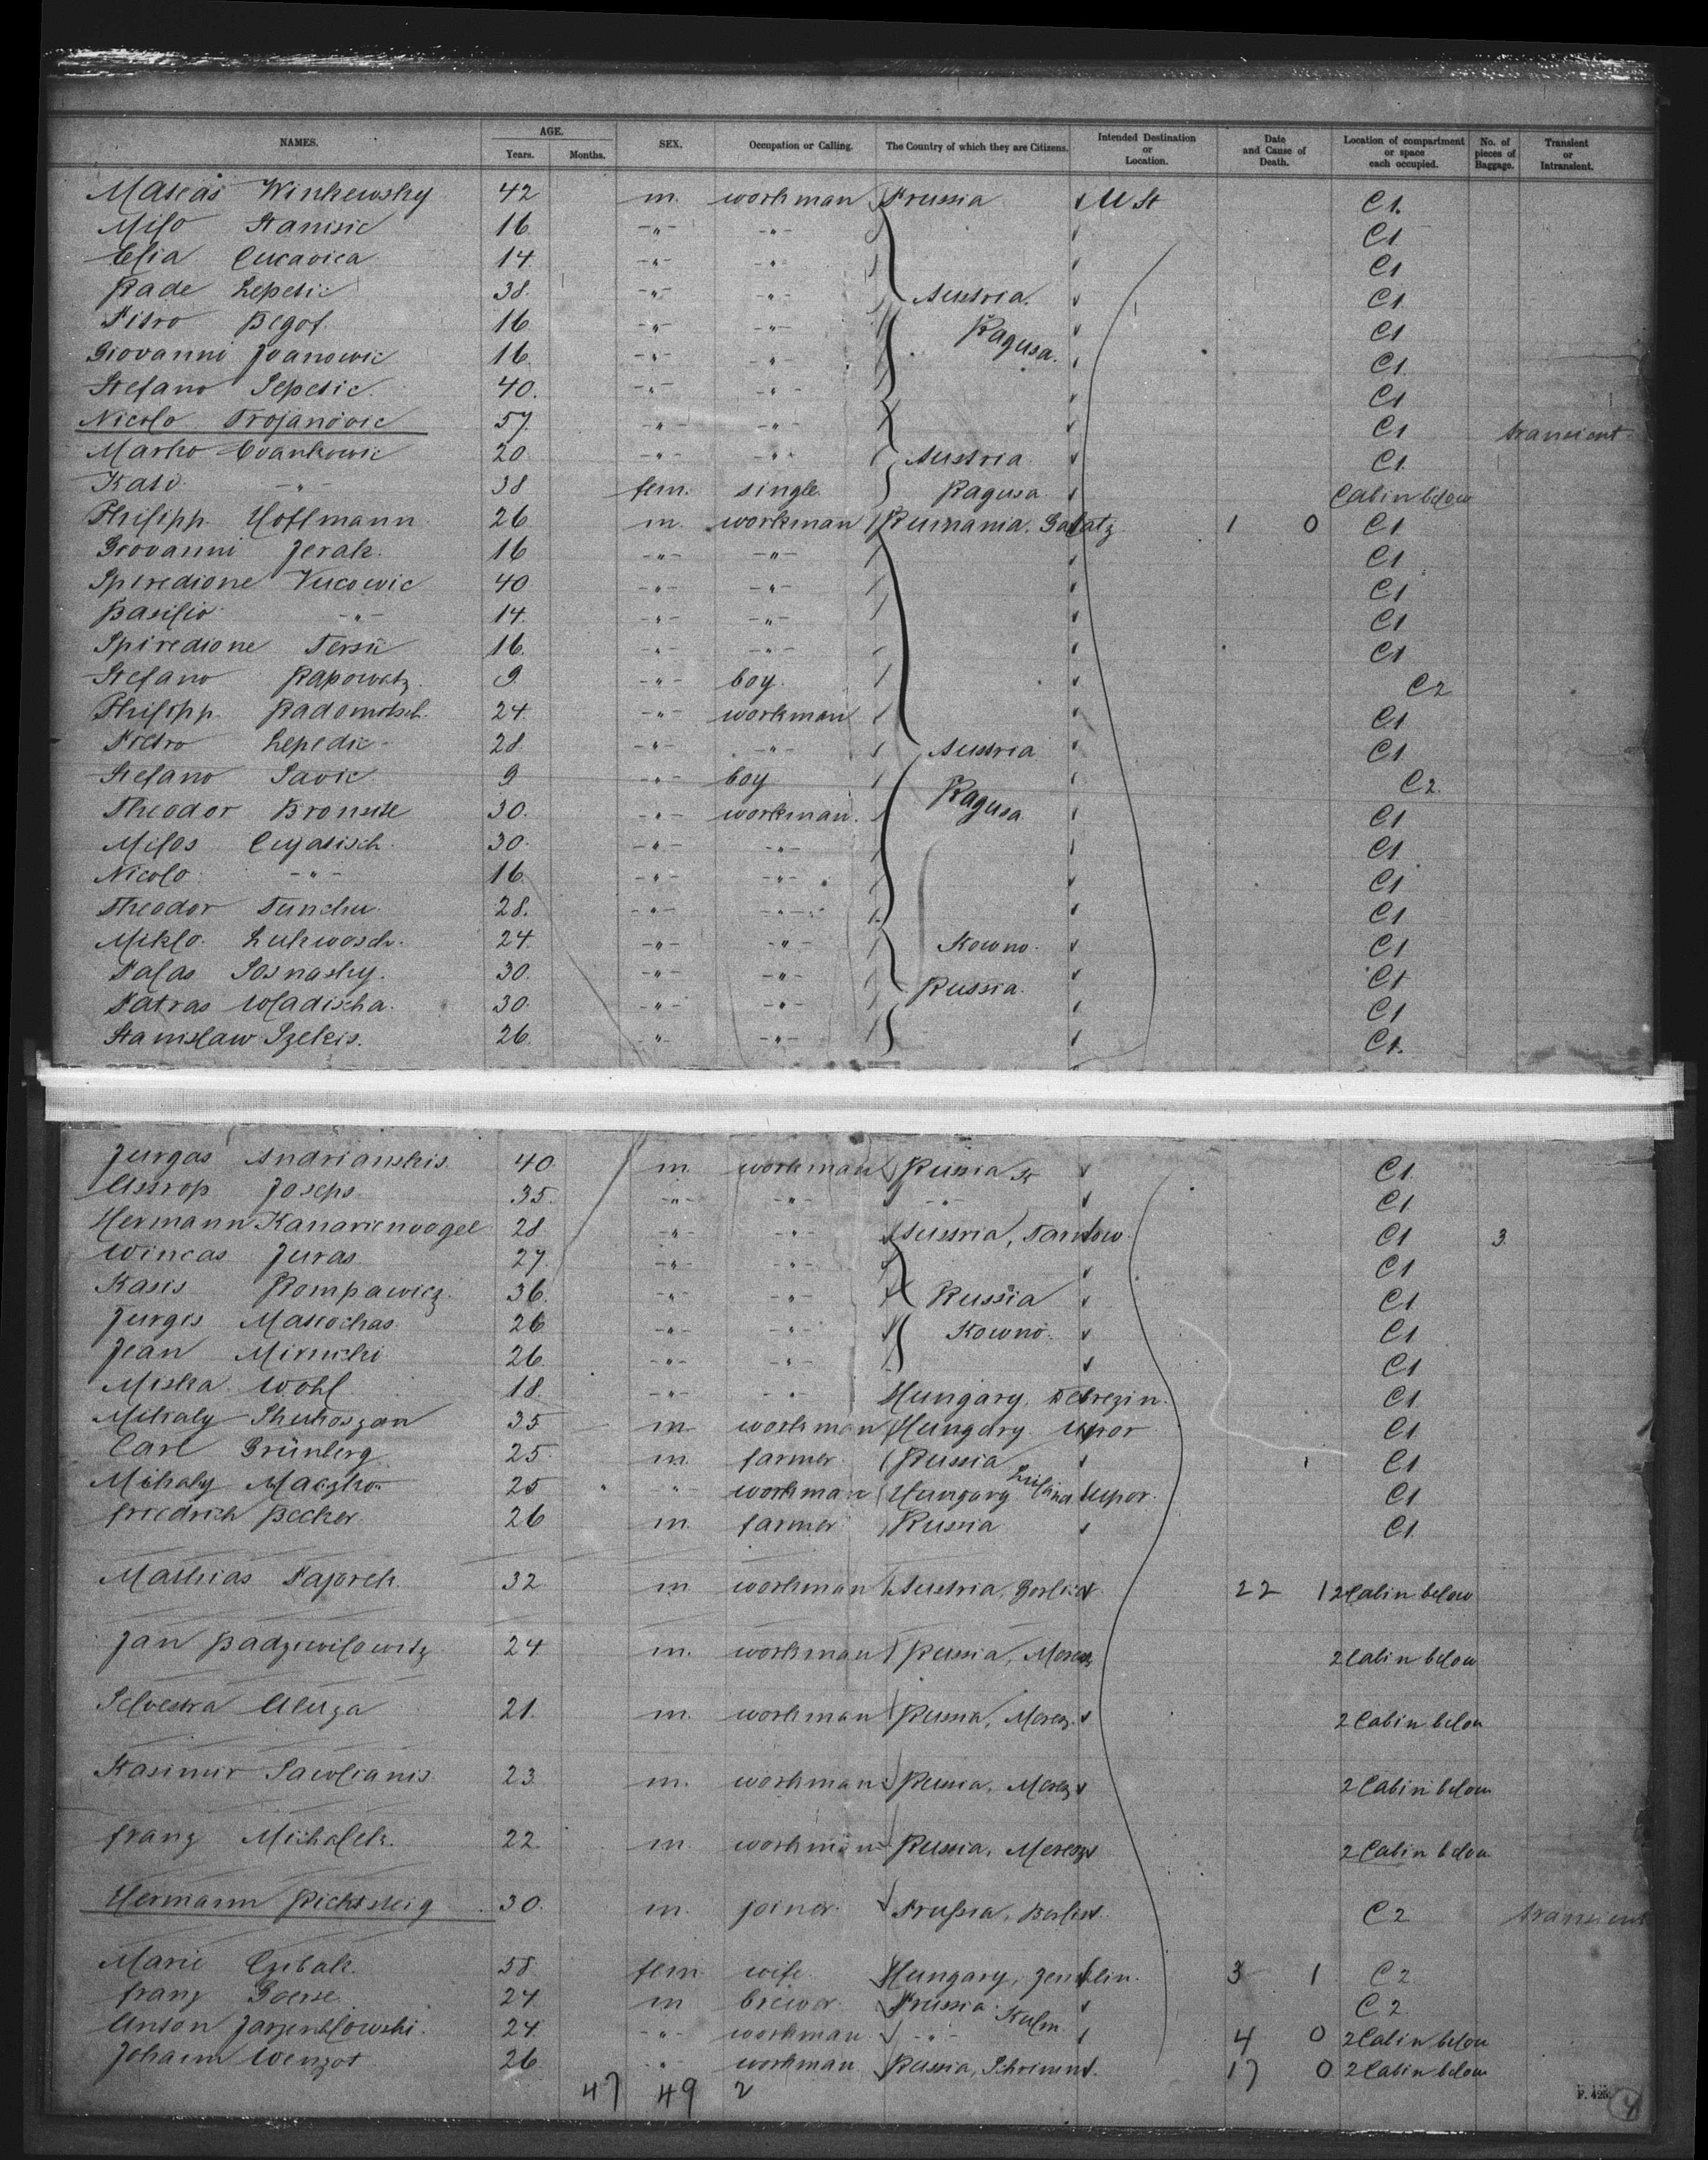 NAMES. AGE. Years. Months. SEX. Occupation or Calling. The Country of which they are Citizens. Intended Destination or Location. Date and Cause of Death. Location of compartment or space each occupied. No. of pieces of Baggage. Transient or Intransient.
Mateas Winkewsky 42 m. workman Prussia U St C1.
Milo Stanisic 16 -"- -"- C1
Elia Cucavica 14 -"- -"- C1
Rade Lepetic 38. -"- -"- Austria. C1
Pitro Begof. 16 -"- -"- Ragusa. C1
Giovanni Jvanowic 16 -"- -"- C1
Stefano Sepetic. 40. -"- -"- C1
Nicolo Trojanovic 57. -"- -"- C1 transient
Marko Evankowic 20 -"- -"- Austria C1
Kato -"- 38 fem. single Ragusa Cabin below
Philipp Hoffmann 26 m. workman Rumania. Galatz 1 0 C1
Giovanni Jerak. 16 -"- -"- C1
Spiredione Vucowic 40 -"- -"- C1
Basilio -"- 14. -"- -"- C1
Spiredione Tersic 16. -"- -"- C1
Stefano Rapowatz. 9 -"- boy. C2
Philipp Radomitsch. 24 -"- workman C1
Pietro Lepedic 28 -"- -"- Austria C1
Stefano Savic 9 -"- boy C2.
Theodor 30. -"- workman. Ragusa C1
Milos Cujatisch. 30. -"- -"- C1
Nicolo -"- 16 -"- -"- C1
Theodor Tunchu 28. -"- -"- C1
Miklo Lukwosch. 24 -"- -"- Kowno. C1
Palas Sosnasky. 30. -"- -"- Russia. C1
Patras Wladischa. 30. -"- -"- C1
Stanislaw Szekis. 26 -"- -"- C1.
Jurgas Andrianskis 40 m workman Russia C1.
Astrop Joseps 35. -"- -"- -"- C1
Hermann Kanarienvogel 28 -"- -"- Austria, Tarnow C1 3
Wincas Juras 27. -"- -"- C1
Kasis Rompawicz. 36. -"- -"- Russia C1
Jurgis Matiochas 26 -"- -"- Kowno. C1
Jean Mirucki 26. -"- -"- C1
Miska Wohl 18. -"- -"- Hungary, Debrezin. C1
Mihaly 35 m workman Hungary Upor C1
Carl Grünberg 25. m. farmer Russia C1
Mihaly Maczko 25 -"- workman Hungary Upor. C1
Friedrich Becker 26 m. farmer Russia C1.
Mathias Paporek. 32 m workman Austria, Gorlice 22 1 2 Cabin below
Jan Badzewilowitz 24 m. workman Russia, Merecz 2 Cabin below
Selvestra Aluza 21. m. workman Russia, Merecz. 2 Cabin below
Kasimir Sawlianis 23 m. workman Russia, Merecz 2 Cabin below
Franz Michalek. 22 m. workman Russia, Merecz 2 Cabin below
Hermann Richtsteig 30. m. joiner Prussia, Berlin. C2 transient
Marie Czibak. 58 fem wife Hungary, Zemplin. 3 1 C2
Franz Goerse. 24 m brewer Prussia Kulm C2
Anton Jarzemblowski. 24 -"- workman -"- 4 0 2 Cabin below
Johann Wenzot 26 -"- workman Russia, 17 0 2 Cabin below
47 49 2
F. 425. 4